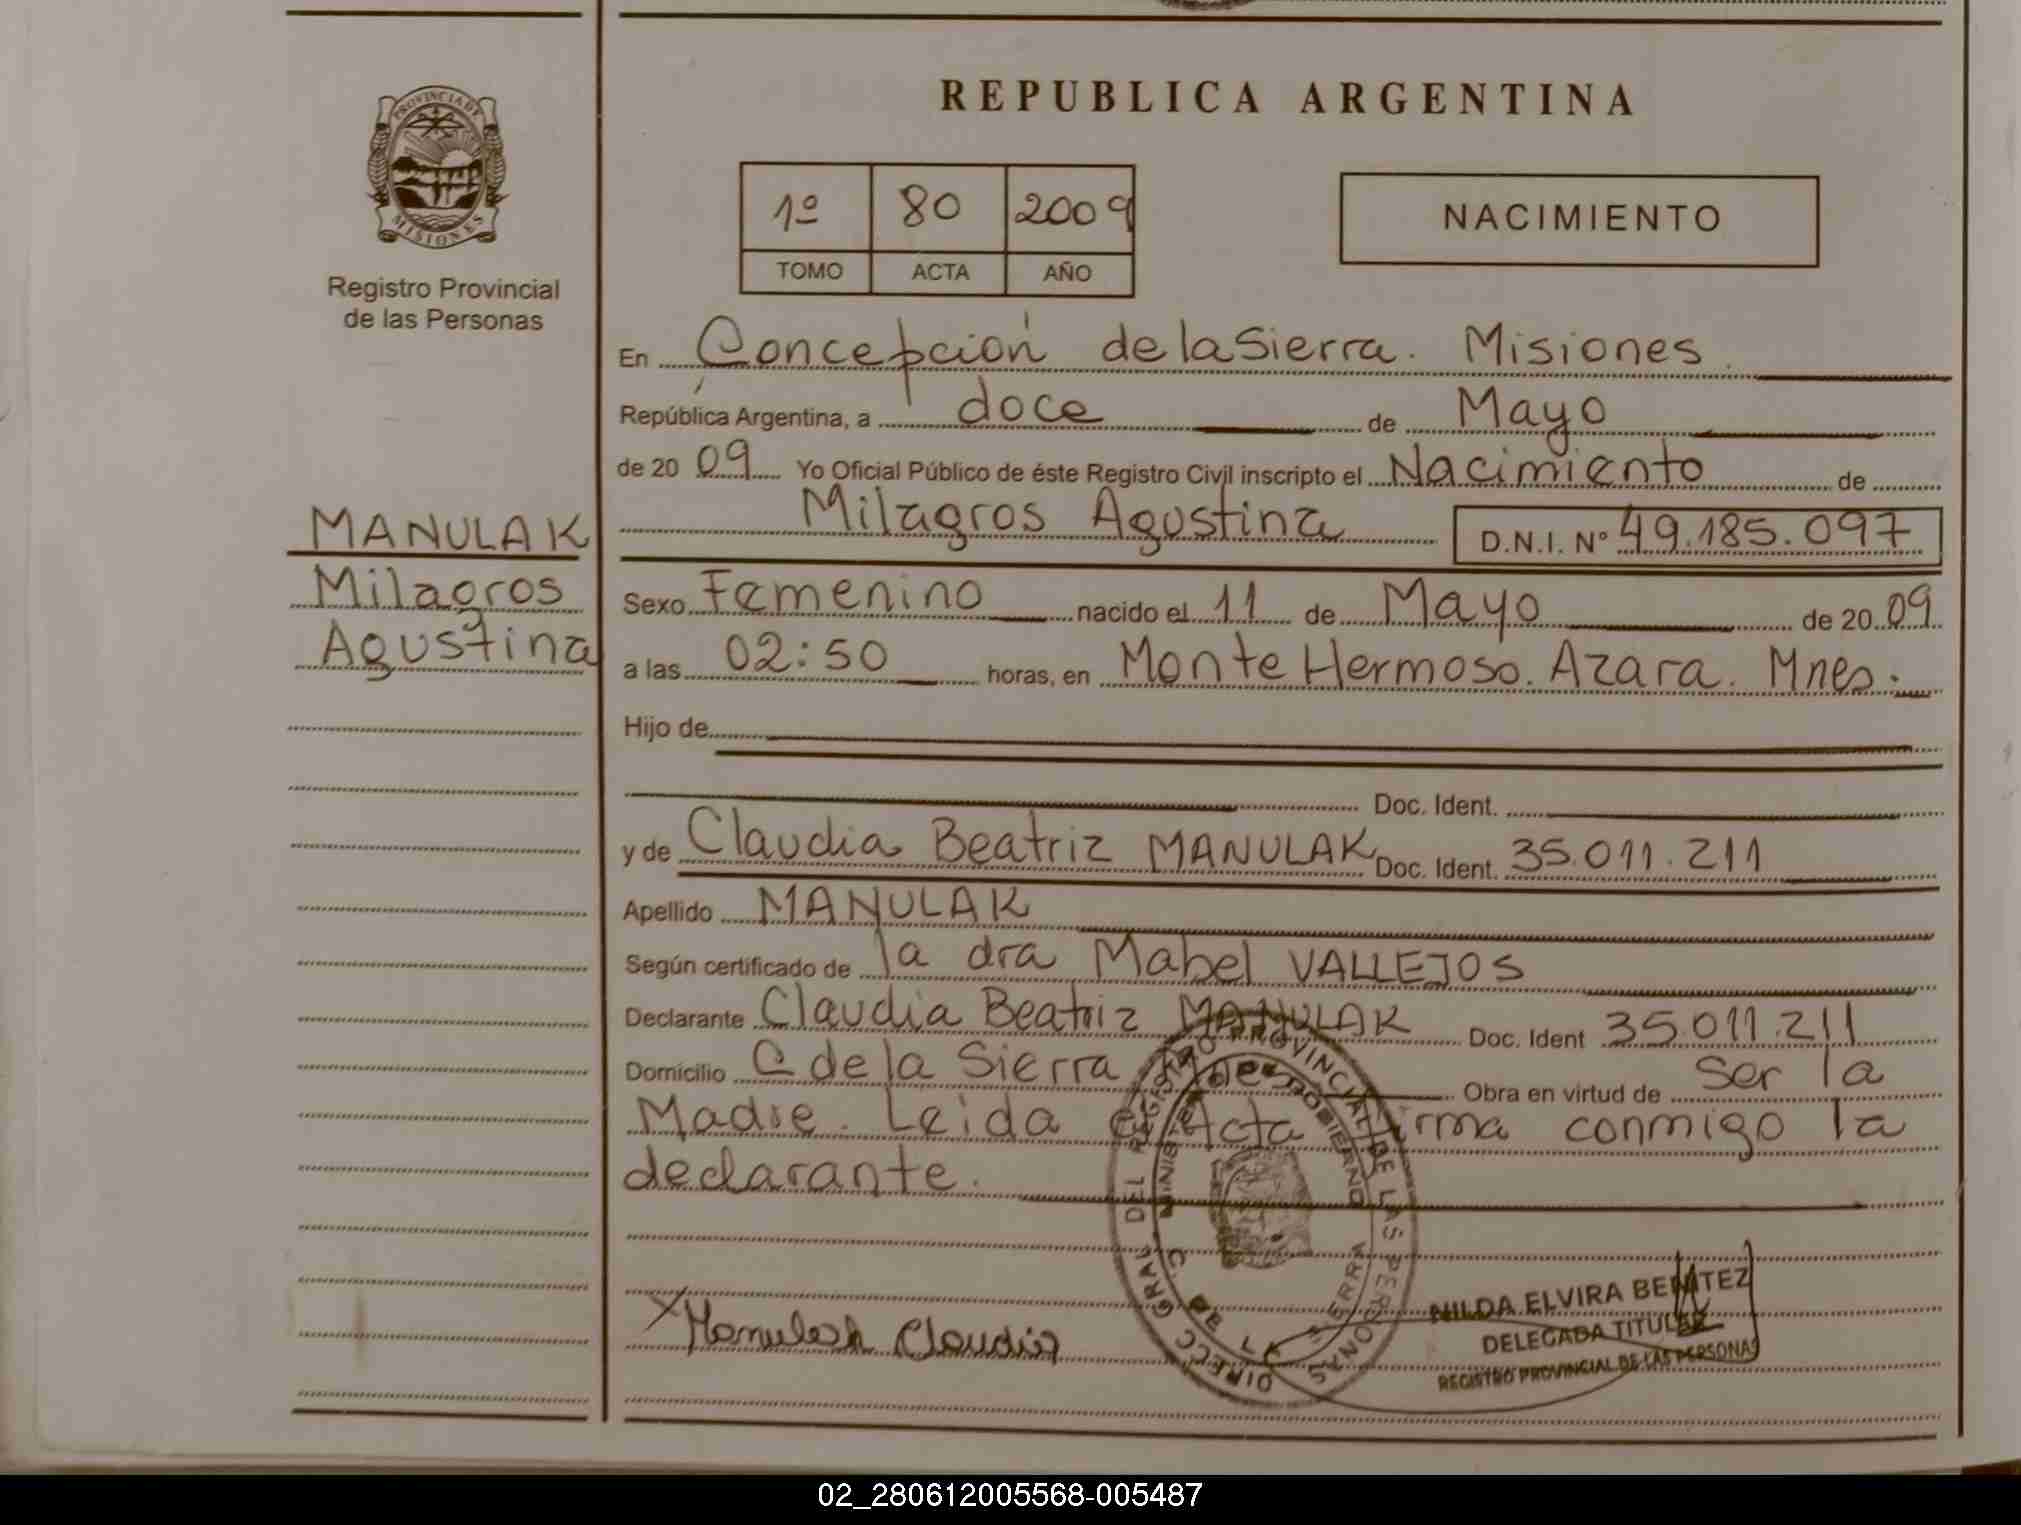 PROVINCIA DE
MISIONES
Registro Provincial
de las Personas
MANULAK
Milagros
Agustina
REPUBLICA ARGENTINA
1º 80 2009
TOMO ACTA AÑO
NACIMIENTO
En Concepción de la Sierra. Misiones.
República Argentina, a doce de Mayo
de 20 09 Yo Oficial Público de éste Registro Civil inscripto el Nacimiento de
Milagros Agustina D.N.I. Nº 49.185.097
Sexo Femenino nacido el 11 de Mayo de 20 09
a las 02:50 horas, en Monte Hermoso. Azara. Mnes.
Hijo de
Doc. Ident.
y de Claudia Beatriz MANULAK Doc. Ident. 35.011.211
Apellido MANULAK
Según certificado de la dra Mabel VALLEJOS
Declarante Claudia Beatriz MANULAK Doc. Ident 35.011.211
Domicilio C de la Sierra Mnes Obra en virtud de Ser la
Madre. Leida el Acta firma conmigo la
declarante.
DIRECC GRAL DEL REGISTRO PROVINCIAL DE LAS PERSONAS
MINISTERIO DE GOBIERNO
C. DE L SIERRA
X Manulak Claudia
NILDA ELVIRA BENITEZ
DELEGADA TITULAR
REGISTRO PROVINCIAL DE LAS PERSONAS
02_280612005568-005487